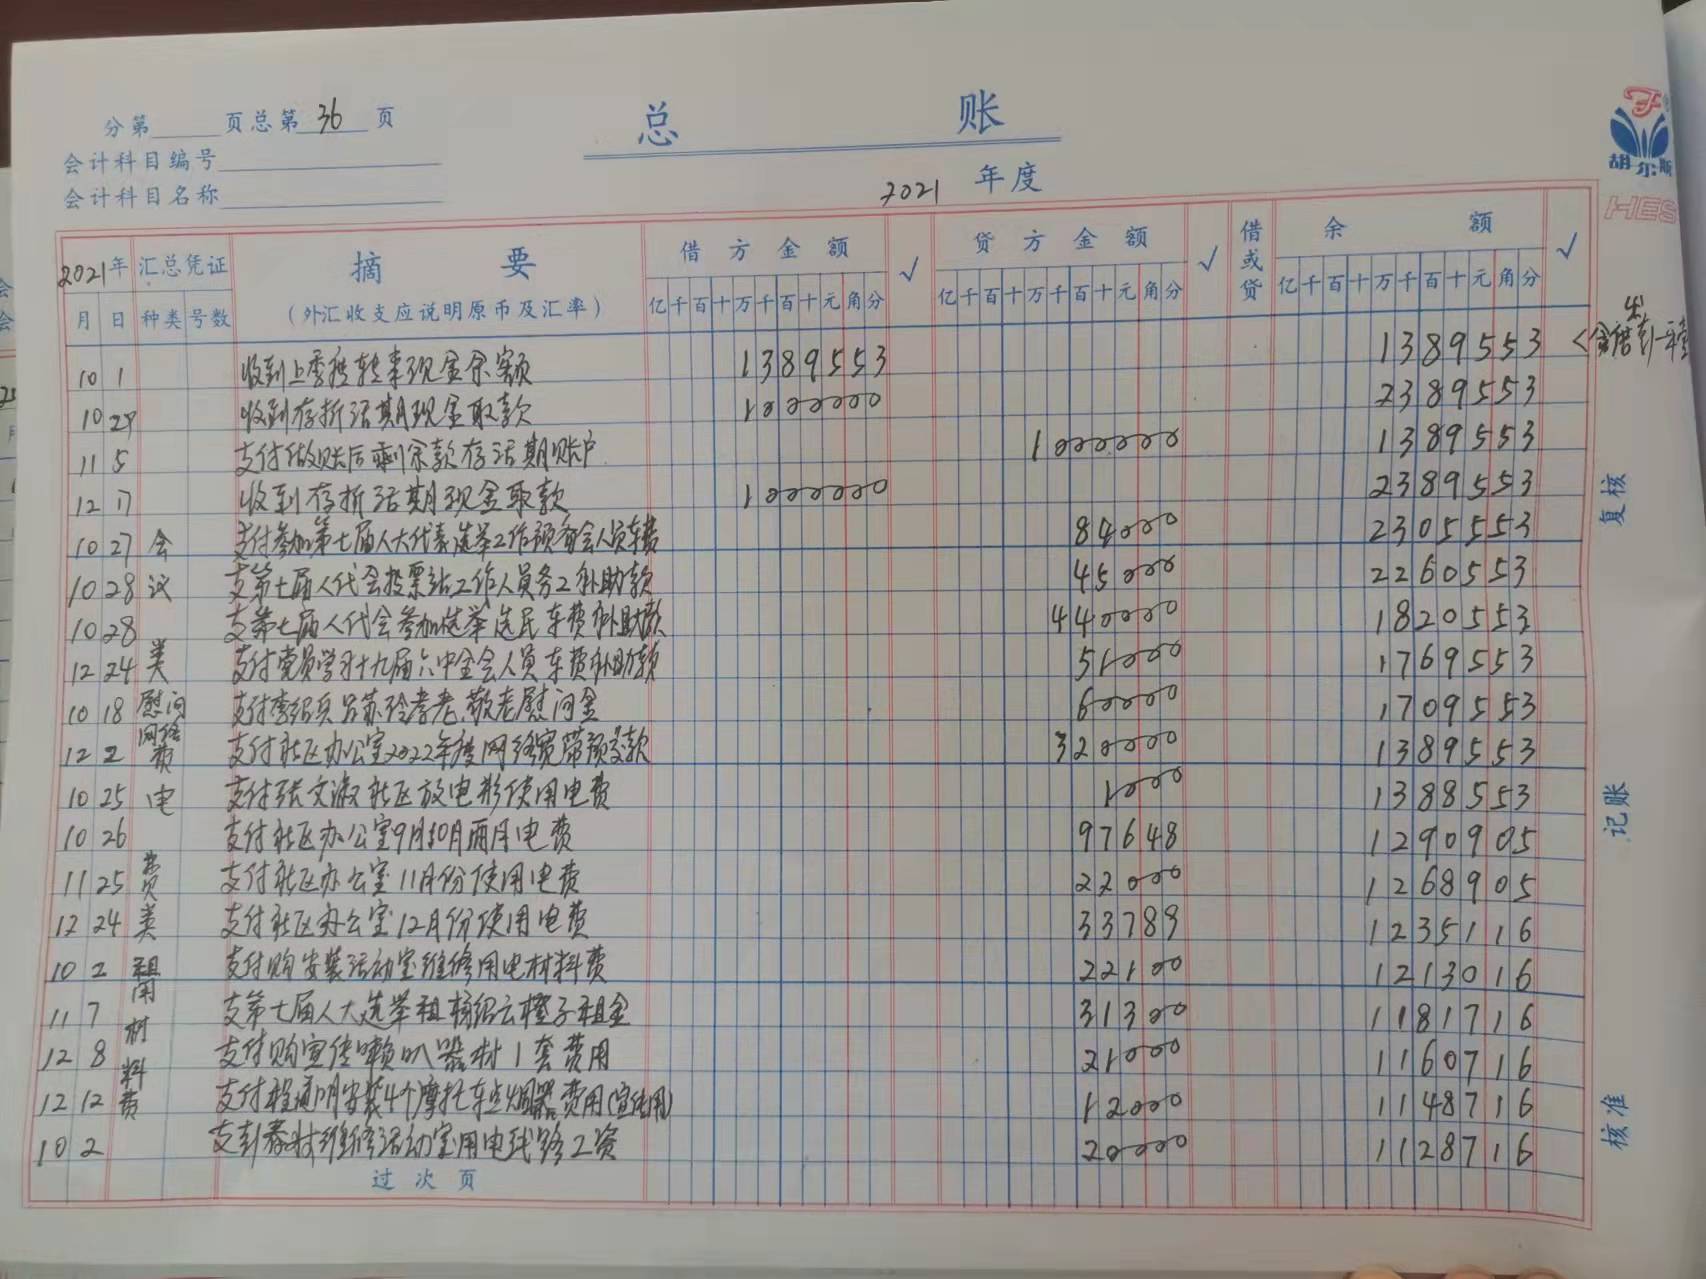 总 账
分第 页总第 36 页
会计科目编号
会计科目名称
2021 年度
胡尔斯
HES
2021年 汇总凭证 摘 要 借方金额 √ 贷方金额 √ 借或贷 余 额 √
月 日 种类 号数 (外汇收支应说明原币及汇率) 亿千百十万千百十元角分 亿千百十万千百十元角分 亿千百十万千百十元角分
10 1 收到上季度转来现金余额 1389553 1389553
10 27 收到存折活期现金取款 1000000 2389553
11 5 支付做账后剩余款存活期账户 1000000 1389553
12 17 收到存折活期现金取款 1000000 2389553
10 27 会 支付参加第七届人大代表选举工作预备会人员车费 84000 2305553
10 28 议 支第七届人代会投票站工作人员务工补助款 45000 2260553
10 28 支第七届人代会参加选举选民车费补助款 440000 1820553
12 24 类 支付党员学习十九届六中全会人员车费补助款 51000 1769553
10 18 慰问 支付李绍兵吕苏玲孝老、敬老慰问金 60000 1709553
12 2 网络费 支付社区办公室2022年度网络宽带预交款 320000 1389553
10 25 电 支付张文淑社区放电影使用电费 1000 1388553
10 26 支付社区办公室9月10月两月电费 97648 1290905
11 25 费 支付社区办公室11月份使用电费 22000 1268905
12 24 类 支付社区办公室12月份使用电费 33789 1235116
10 2 租用 支付购安装活动室维修用电材料费 22100 1213016
11 7 材 支第七届人大选举租杨绍云橙子租金 31300 1181716
12 8 料 支付购宣传喇叭器材1套费用 21000 1160716
12 12 费 支付程通明安装4个摩托车点烟器费用(宣传用) 12000 1148716
10 2 支彭泰材维修活动室用电线路工资 20000 1128716
过次页
复核
记账
核准